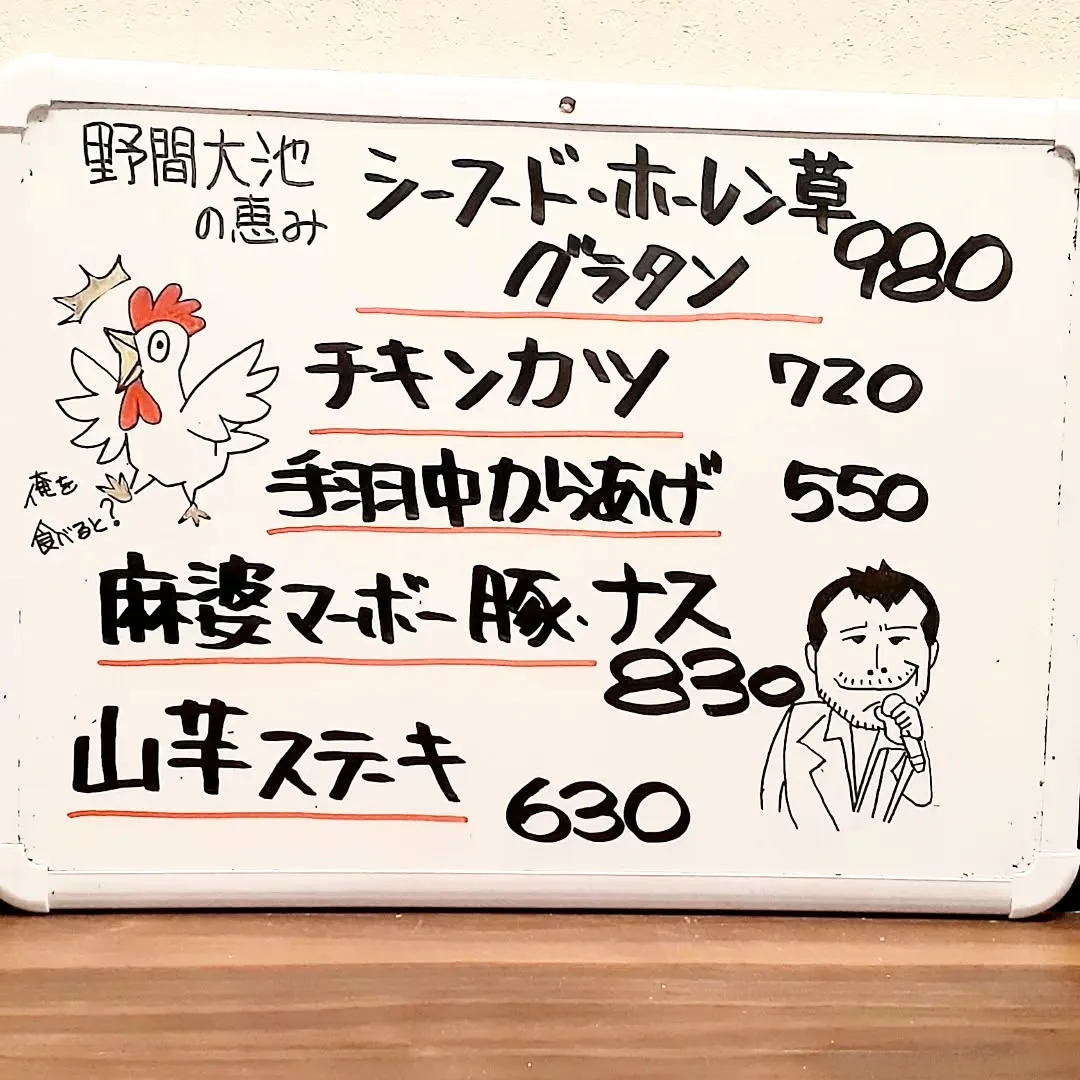 野間大池
の恵み
シーフード・ホーレン草
グラタン 980
チキンカツ 720
手羽中からあげ 550
俺を
食べると?
麻婆マーボー豚・ナス
830
山芋ステーキ
630